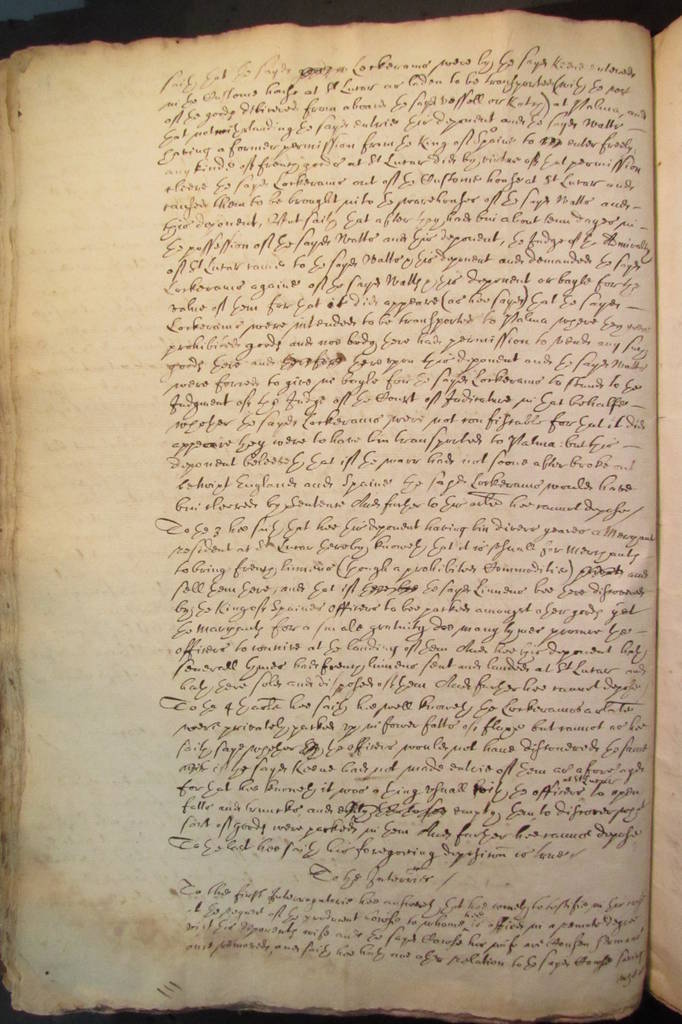 saith that the sayd Lockerams were by the sayd Keene entered
in the Custome house at St Lucar as laden to be transported (with the rest
of the goods delivered from aboard the sayd vessell or Ketch) at Palma, and
that notwithstanding the sayd entrie this deponent and the sayd Watts
having a former permission from the King of Spaine to enter freely
any kinde of french goods at St Lucar did by virtue of that permission
the sayd Lockerams out of the Custome house at St Lucar and
caused them to be brought into the warehouses of the sayd Watts and
this deponent, But saith that after they had bin about tenn dayes in
the possession of the sayd Watts and this deponent, the Judge of the Admiralty
of St Lucar came to the sayd Watts & this deponent and demanded the sayd
Lockerams againe of the sayd Watts & this deponent or bayle for the
value of them for that it did appeare (as hee sayd) that the sayd
Lockerams were intended to be transported to Palma where they were
prohibited goods and noe body there had permission to vend any such
goods there and thereupon this deponent and the sayd Watts
were forced to give in bayle for the sayd Lockerams to stand to the
Judgment of the Judge of the Court of Judicature in that behalfe
whether the sayd Lockerams were not confiscable for that it did
appeare they were to have bin transported to Palma: but this
deponent beleeveth that if the warr had not soone after broke out
betwixt England and Spaine the sayd Lockerams would have
bin cleered by sentence And further to this arle hee cannot depose/
To the 3 hee saith that hee this deponent having bin divers yeares a Merchant
resident at St Lucar thereby knoweth that it is usuall for Merchants
to bring french linnens (though a prohibited Commoditie) and
sell them there, and that if the sayd Linnens bee there discovered
by the King of Spaines officers to bee packed amongst other goods yet
the Marchants for a smale gratuity doe many tymes procure the
officers to connive at the landing of them And hee this deponent hath
severall tymes had french linnens sent and landed at St Lucar and
hath there sold and disposed of them And further hee cannot depose/
To the 4th arle hee saith hee well knoweth the Lockerams arlate
were privately packed up in fower fatts of flaxe but cannot as hee
saith saye whether the officers would not have discovered the same
if the sayd Keene had not made entrie of them as aforesayd
for that hee knoweth it was a thing usuall with the officers at St Lucar to open
fatts and trunckes and empty them to discover what
sort of goods were packed in them And further hee cannot depose
To the last hee saith his foregoeing deposition is true/
To the Interries/
To the first Interrogatorie hee answereth that hee cometh to testifie in this cause
at the request of the producent to whome hee is
this deponents wife and the sayd his wife are Cousin Germans
once removed, and saith hee hath noe other relation to the sayd